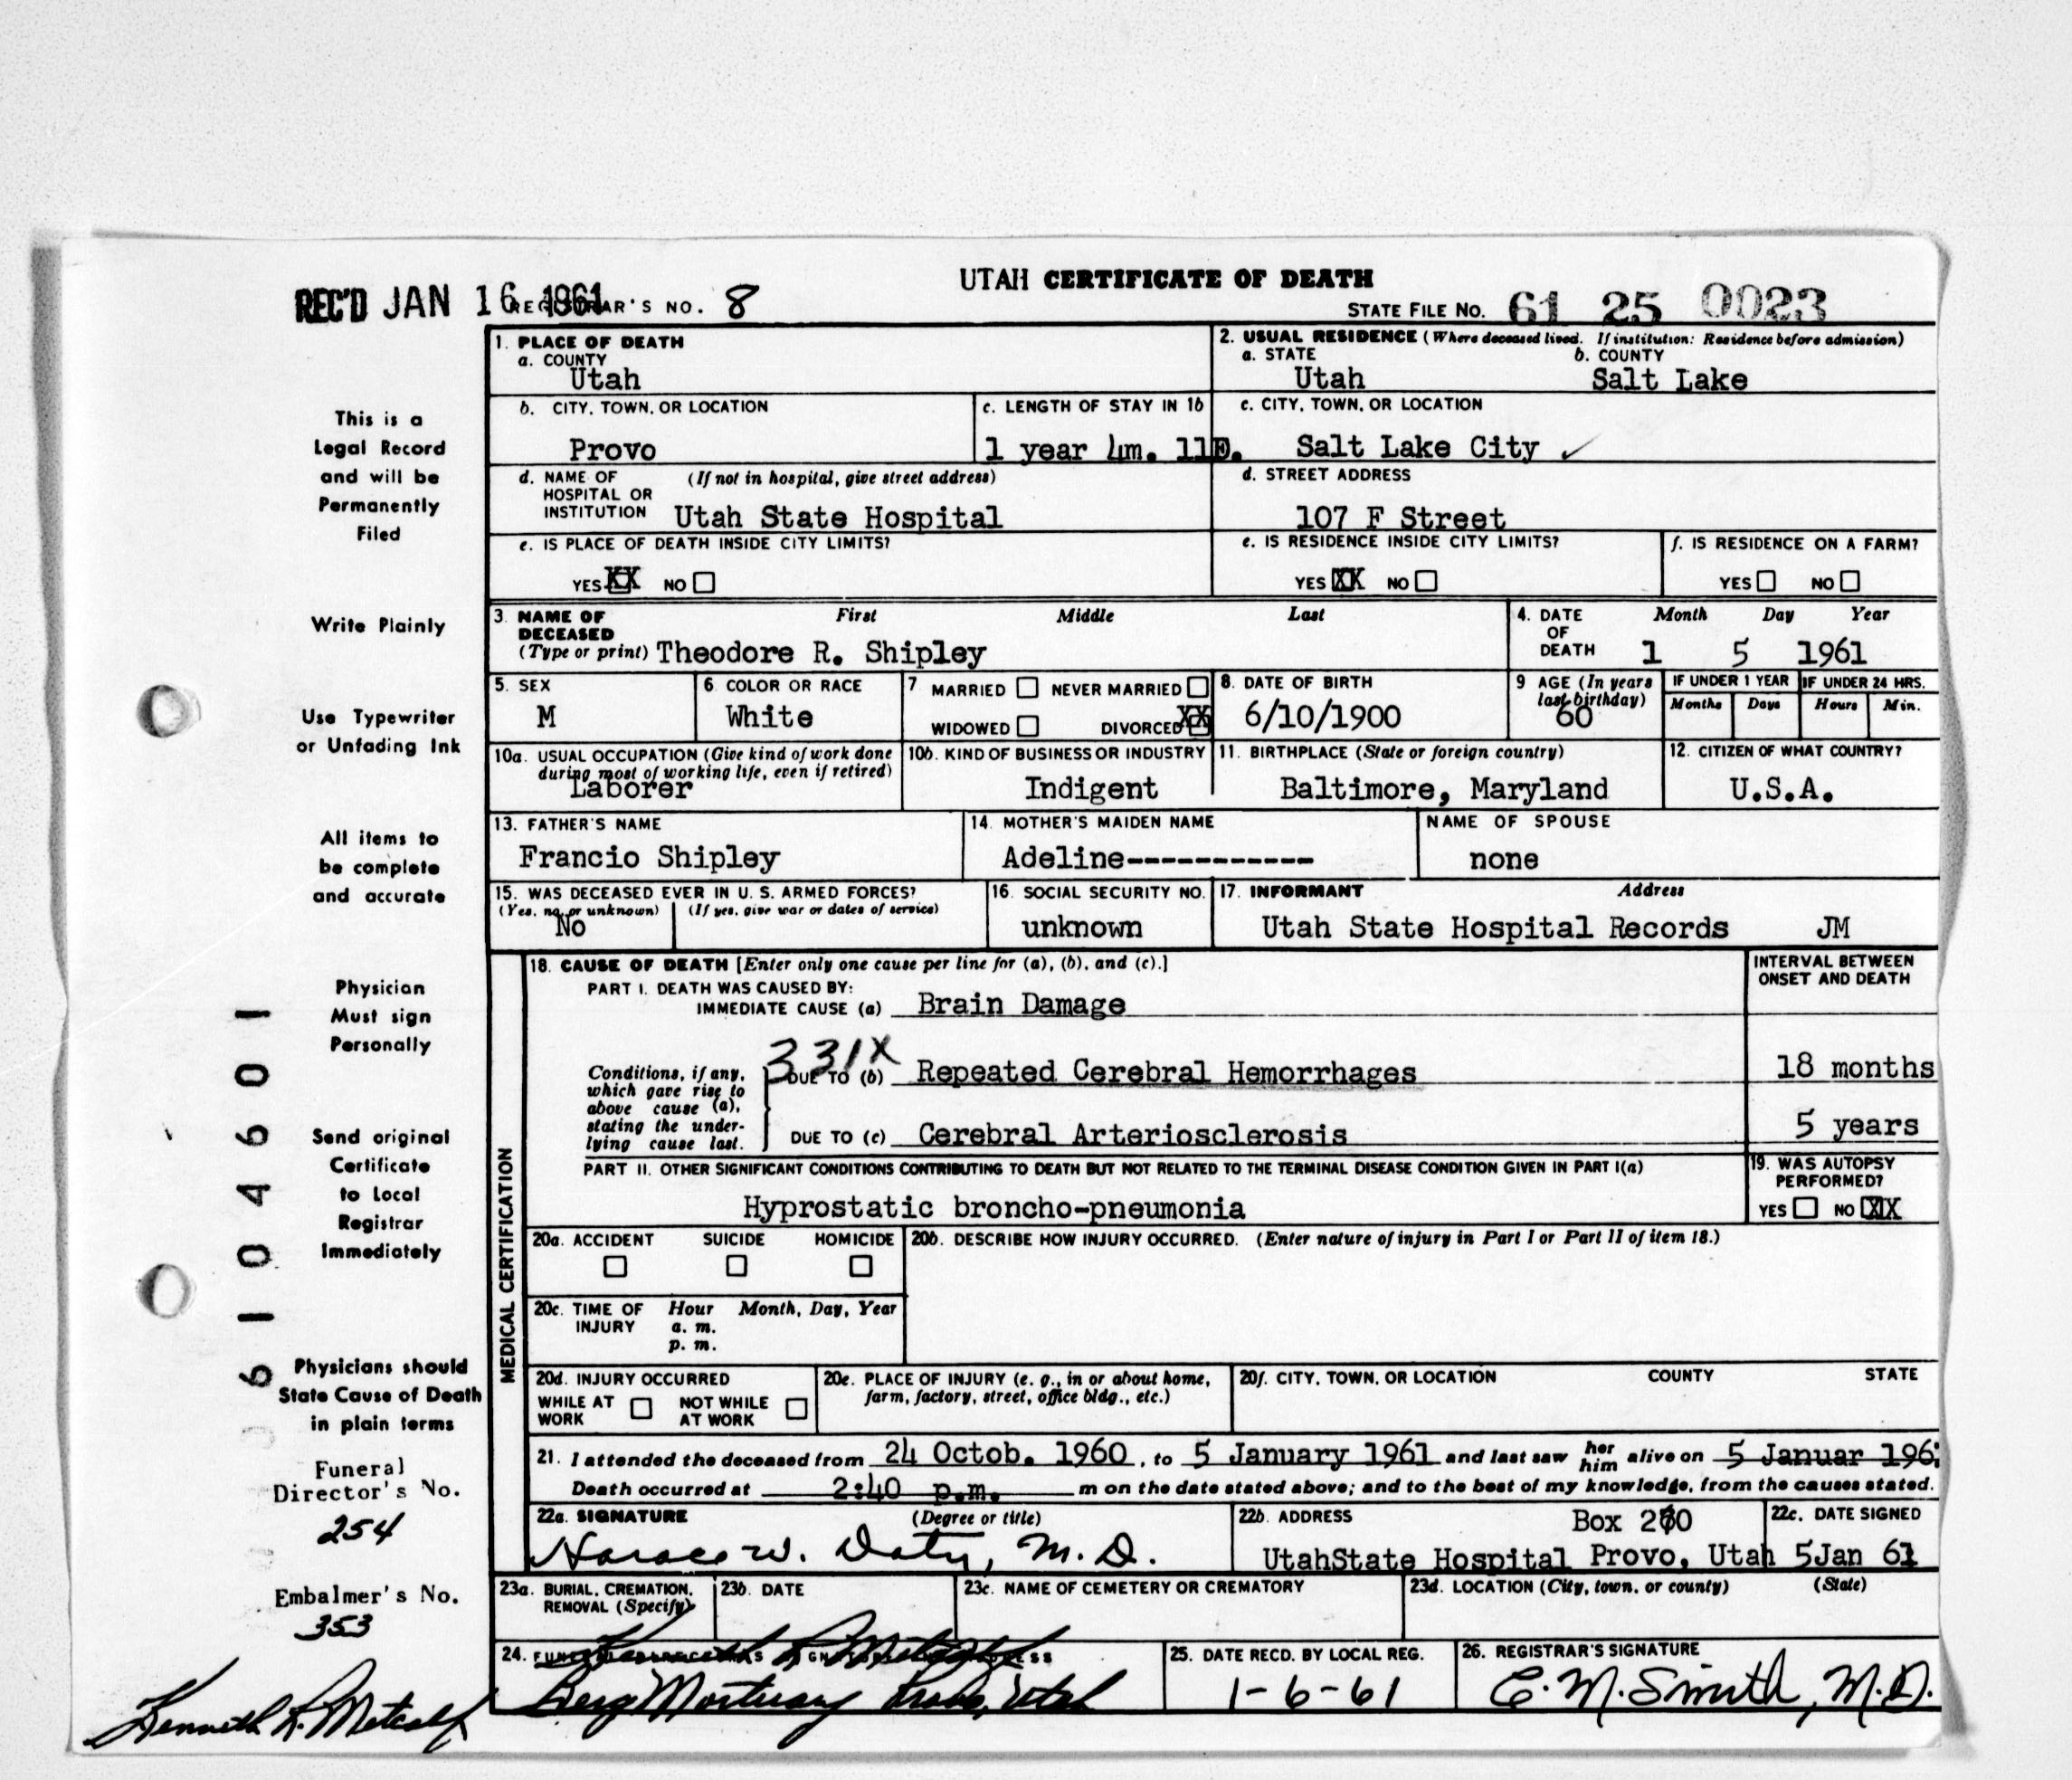 UTAH CERTIFICATE OF DEATH
REC'D JAN 16 1961 REGISTRAR'S NO. 8
STATE FILE NO. 61 25 0023
This is a
Legal Record
and will be
Permanently
Filed
Write Plainly
Use Typewriter
or Unfading Ink
All items to
be complete
and accurate
Physician
Must sign
Personally
Send original
Certificate
to Local
Registrar
Immediately
Physicians should
State Cause of Death
in plain terms
Funeral
Director's No.
254
Embalmer's No.
353
Kenneth L. Metcalf
6 1 0 4 6 0 1
1. PLACE OF DEATH
a. COUNTY
Utah
2. USUAL RESIDENCE (Where deceased lived. If institution: Residence before admission)
a. STATE b. COUNTY
Utah Salt Lake
b. CITY, TOWN, OR LOCATION
Provo
c. LENGTH OF STAY IN 1b
1 year 4m. 11D.
c. CITY, TOWN, OR LOCATION
Salt Lake City ✓
d. NAME OF (If not in hospital, give street address)
HOSPITAL OR
INSTITUTION Utah State Hospital
d. STREET ADDRESS
107 F Street
e. IS PLACE OF DEATH INSIDE CITY LIMITS?
YES XX NO
e. IS RESIDENCE INSIDE CITY LIMITS?
YES XX NO
f. IS RESIDENCE ON A FARM?
YES NO
3. NAME OF First Middle Last
DECEASED
(Type or print) Theodore R. Shipley
4. DATE Month Day Year
OF
DEATH 1 5 1961
5. SEX
M
6. COLOR OR RACE
White
7 MARRIED NEVER MARRIED
WIDOWED DIVORCED XX
8. DATE OF BIRTH
6/10/1900
9 AGE (In years
last birthday)
60
IF UNDER 1 YEAR IF UNDER 24 HRS.
Months Days Hours Min.
10a. USUAL OCCUPATION (Give kind of work done
during most of working life, even if retired)
Laborer
10b. KIND OF BUSINESS OR INDUSTRY
Indigent
11. BIRTHPLACE (State or foreign country)
Baltimore, Maryland
12. CITIZEN OF WHAT COUNTRY?
U.S.A.
13. FATHER'S NAME
Francio Shipley
14. MOTHER'S MAIDEN NAME
Adeline-----------
NAME OF SPOUSE
none
15. WAS DECEASED EVER IN U. S. ARMED FORCES?
(Yes, no, or unknown) (If yes, give war or dates of service)
No
16. SOCIAL SECURITY NO.
unknown
17. INFORMANT Address
Utah State Hospital Records JM
MEDICAL CERTIFICATION
18. CAUSE OF DEATH [Enter only one cause per line for (a), (b), and (c).]
PART I. DEATH WAS CAUSED BY:
IMMEDIATE CAUSE (a) Brain Damage
INTERVAL BETWEEN
ONSET AND DEATH
331X
Conditions, if any,
which gave rise to
above cause (a),
stating the under-
lying cause last.
DUE TO (b) Repeated Cerebral Hemorrhages 18 months
DUE TO (c) Cerebral Arteriosclerosis 5 years
PART II. OTHER SIGNIFICANT CONDITIONS CONTRIBUTING TO DEATH BUT NOT RELATED TO THE TERMINAL DISEASE CONDITION GIVEN IN PART I(a)
Hyprostatic broncho-pneumonia
19. WAS AUTOPSY
PERFORMED?
YES NO XX
20a. ACCIDENT SUICIDE HOMICIDE
20b. DESCRIBE HOW INJURY OCCURRED. (Enter nature of injury in Part I or Part II of item 18.)
20c. TIME OF Hour Month, Day, Year
INJURY a. m.
p. m.
20d. INJURY OCCURRED
WHILE AT NOT WHILE
WORK AT WORK
20e. PLACE OF INJURY (e. g., in or about home,
farm, factory, street, office bldg., etc.)
20f. CITY, TOWN, OR LOCATION COUNTY STATE
21. I attended the deceased from 24 Octob. 1960, to 5 January 1961 and last saw her him alive on 5 Januar 196
Death occurred at 2:40 p.m. m on the date stated above; and to the best of my knowledge, from the causes stated.
22a. SIGNATURE (Degree or title)
Horace W. Doty, M. D.
22b. ADDRESS Box 270
UtahState Hospital Provo, Utah
22c. DATE SIGNED
5Jan 61
23a. BURIAL, CREMATION,
REMOVAL (Specify)
23b. DATE
23c. NAME OF CEMETERY OR CREMATORY
23d. LOCATION (City, town, or county) (State)
24.
Kenneth L. Metcalf
Berg Mortuary Provo, Utah
25. DATE RECD. BY LOCAL REG.
1-6-61
26. REGISTRAR'S SIGNATURE
E. M. Smith, M.D.